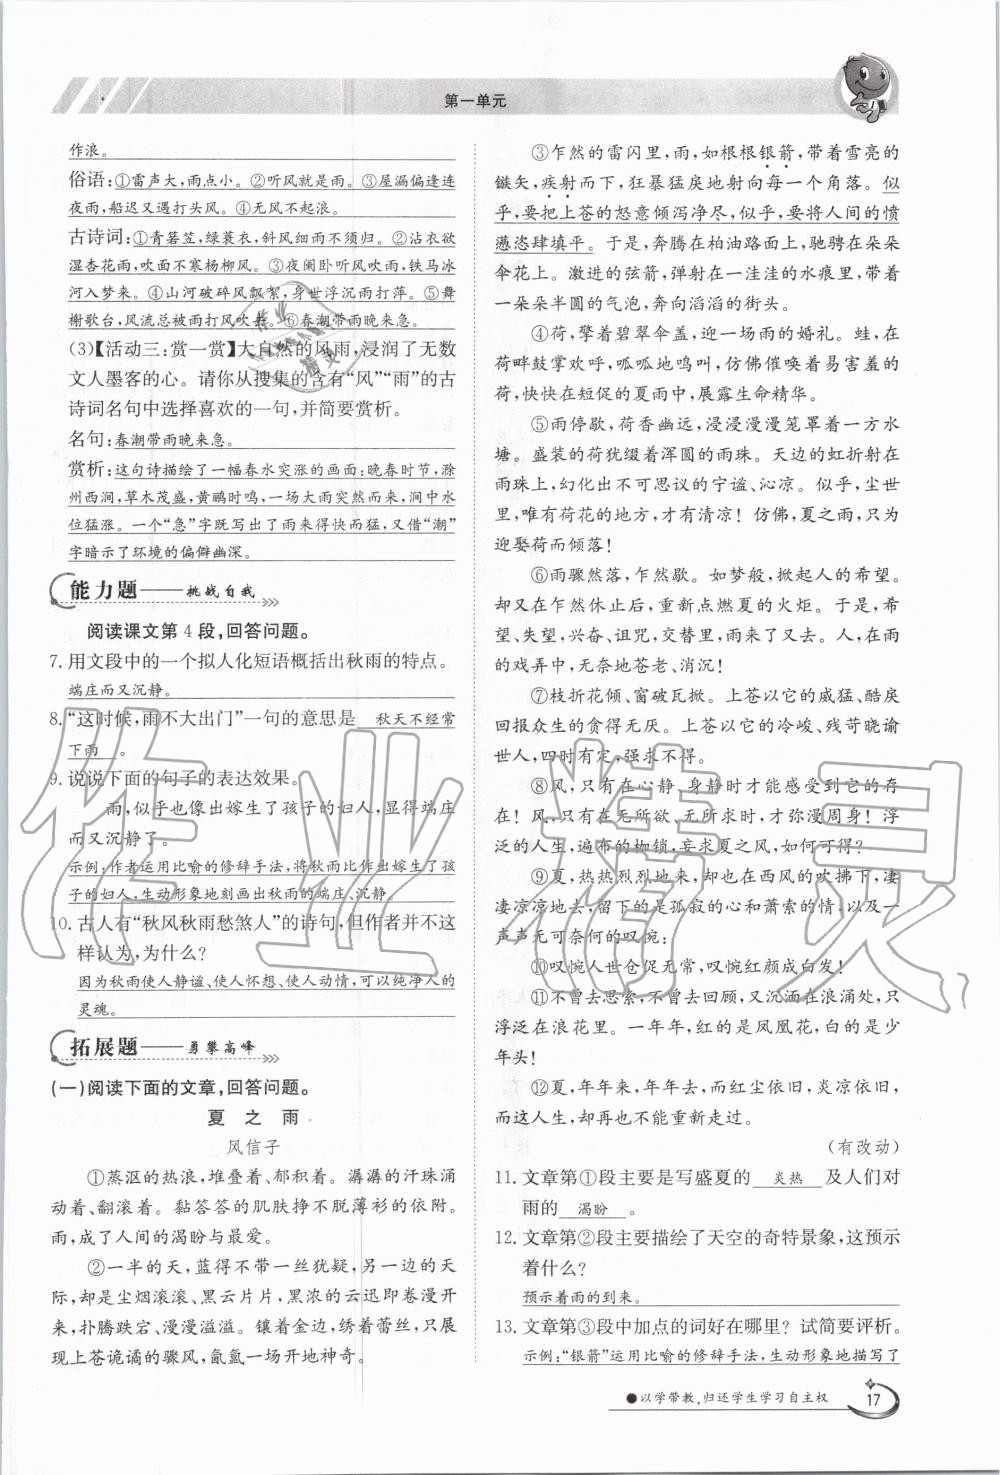 第一单元
作浪。
俗语:①雷声大,雨点小。②听风就是雨。③屋漏偏逢连
夜雨,船迟又遇打头风。④无风不起浪。
古诗词:①青箬笠,绿蓑衣,斜风细雨不须归。②沾衣欲
湿杏花雨,吹面不寒杨柳风。③夜阑卧听风吹雨,铁马冰
河入梦来。④山河破碎风飘絮,身世浮沉雨打萍。⑤舞
榭歌台,风流总被雨打风吹去。⑥春潮带雨晚来急。
(3)【活动三:赏一赏】大自然的风雨,浸润了无数
文人墨客的心。请你从搜集的含有“风”“雨”的古
诗词名句中选择喜欢的一句,并简要赏析。
名句:春潮带雨晚来急。
赏析:这句诗描绘了一幅春水突涨的画面:晚春时节,滁
州西涧,草木茂盛,黄鹂时鸣,一场大雨突然而来,涧中水
位猛涨。一个“急”字既写出了雨来得快而猛,又借“潮”
字暗示了环境的偏僻幽深。
能力题——挑战自我
阅读课文第4段,回答问题。
7. 用文段中的一个拟人化短语概括出秋雨的特点。
端庄而又沉静。
8. “这时候,雨不大出门”一句的意思是 秋天不经常
下雨 。
9. 说说下面的句子的表达效果。
雨,似乎也像出嫁生了孩子的妇人,显得端庄
而又沉静了。
示例:作者运用比喻的修辞手法,将秋雨比作出嫁生了孩
子的妇人,生动形象地刻画出秋雨的端庄、沉静。
10. 古人有“秋风秋雨愁煞人”的诗句,但作者并不这
样认为,为什么?
因为秋雨使人静谧、使人怀想、使人动情,可以纯净人的
灵魂。
拓展题——勇攀高峰
(一)阅读下面的文章,回答问题。
夏之雨
风信子
①蒸沤的热浪,堆叠着、郁积着。潺潺的汗珠涌
动着、翻滚着。黏答答的肌肤挣不脱薄衫的依附。
雨,成了人间的渴盼与最爱。
②一半的天,蓝得不带一丝犹疑,另一半的天
际,却是尘烟滚滚、黑云片片,黑浓的云迅即卷漫开
来,扑腾跌宕、漫漫溢溢。镶着金边,绣着蕾丝,只展
现上苍诡谲的骤风,氤氲一场开地神奇。
③乍然的雷闪里,雨,如根根银箭,带着雪亮的
镞矢,疾射而下,狂暴猛戾地射向每一个角落。似
乎,要把上苍的怒意倾泻净尽,似乎,要将人间的愤
懑恣肆填平。于是,奔腾在柏油路面上,驰骋在朵朵
伞花上。激进的弦箭,弹射在一洼洼的水痕里,带着
一朵朵半圆的气泡,奔向滔滔的街头。
④荷,擎着碧翠伞盖,迎接一场雨的婚礼。蛙,在
荷畔鼓掌欢呼,呱呱地鸣叫,仿佛催唤着易害羞的
荷,快快在短促的夏雨中,展露生命精华。
⑤雨停歇,荷香幽远,浸浸漫漫笼罩着一方水
塘。盛装的荷犹缀着浑圆的雨珠。天边的虹折射在
雨珠上,幻化出不可思议的宁谧、沁凉。似乎,尘世
里,唯有荷花的地方,才有清凉!仿佛,夏之雨,只为
迎娶荷而倾落!
⑥雨骤然落,乍然歇。如梦般,掀起人的希望。
却又在乍然休止后,重新点燃夏的火炬。于是,希
望、失望,兴奋、诅咒,交替里,雨来了又去。人,在雨
的戏弄中,无奈地苍老、消沉!
⑦枝折花倾、窗破瓦掀。上苍以它的威猛、酷戾
回报众生的贪得无厌。上苍以它的冷峻、残苛晓谕
世人,四时有定,强求不得。
⑧风,只有在心静、身静时才能感受到它的存
在!风,只有在无所欲、无所求时,才弥漫周身!浮
泛的人生,遍布的枷锁,妄求夏之风,如何可得?
⑨夏,热热烈烈地来,却也在西风的吹拂下,凄
凄凉凉地去,留下的是孤寂的心和萧索的情,以及一
声声无可奈何的叹惋:
⑩叹惋人世仓促无常,叹惋红颜成白发!
⑪不曾去思索,不曾去追寻,又沉湎在浪涌处,只
浮泛在浪花里。一年年,红的是凤凰花,白的是少
年头!
⑫夏,年年来,年年去,而红尘依旧,炎凉依旧,
而这人生,却无法重新走过。
(有改动)
11. 文章第①段主要是写盛夏的 炎热 及人们对
雨的 渴盼 。
12. 文章第②段主要描绘了天空的奇特景象,这预示
着什么?
预示着雨的到来。
13. 文章第③段中加点的词好在哪里?试简要评析。
示例:“银箭”运用比喻的修辞手法,生动形象地描写了
●以学带教,归还学生学习自主权
17
作业精灵